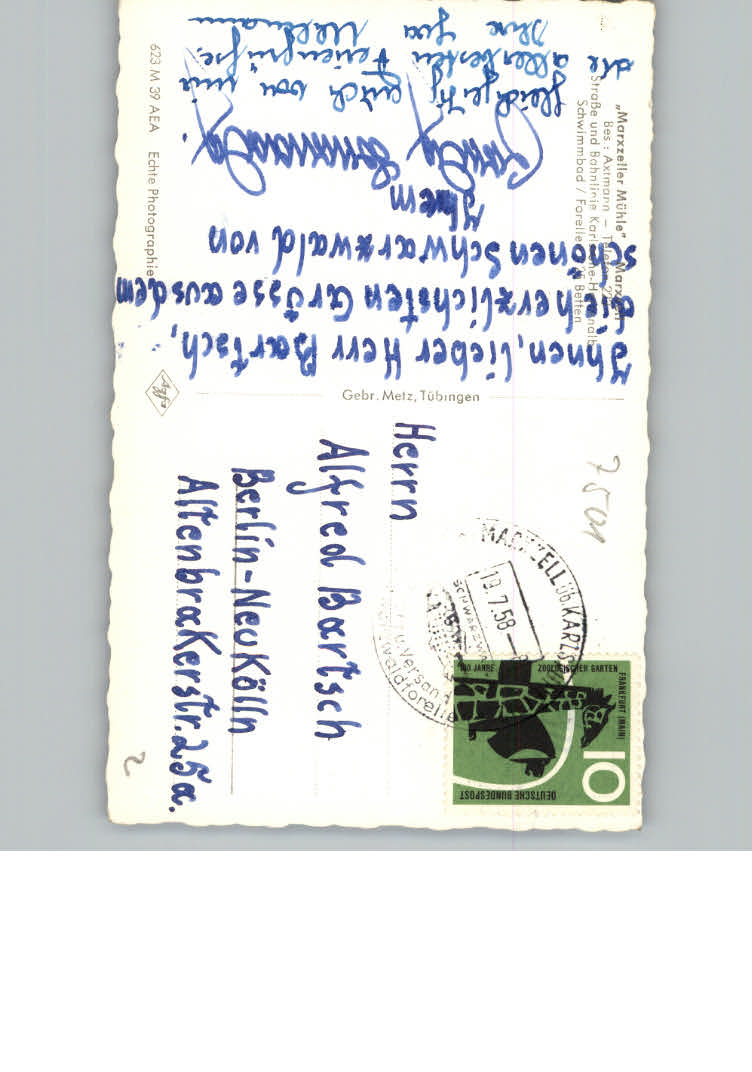 „Marxzeller Mühle“ Marxzell
Bes.: Axtmann – Telefon
Straße und Bahnlinie Karlsruhe-Herrenalb
Schwimmbad / Forellen / 25 Betten
Ihnen, lieber Herr Bartsch,
die herzlichsten Grüsse aus dem
schönen Schwarzwald von
Ihrem
Gleichzeitig auch von mir
die allerbesten Feriengrüße.
Ihre Frau
623 M 39 AEA Echte Photographie
Agfa
Gebr. Metz, Tübingen
Herrn
Alfred Bartsch
Berlin-Neukölln
Altenbrakerstr. 25a.
7501
2
MARXZELL üb KARLS
19.7.58
SCHWARZW
Versan
waldforelle
100 JAHRE ZOOLOGISCHER GARTEN
FRANKFURT (MAIN)
10
DEUTSCHE BUNDESPOST